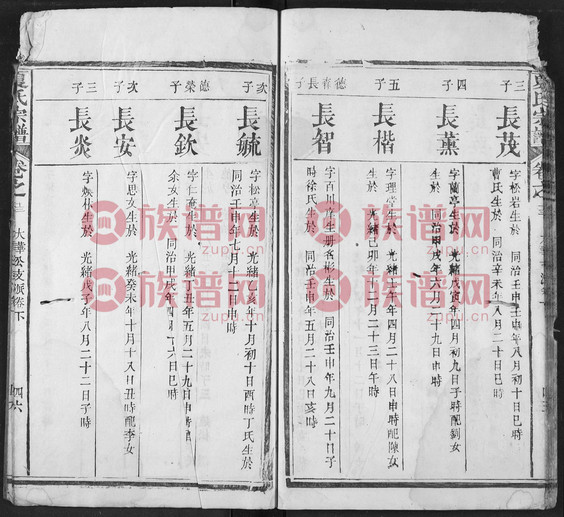 三子
長茂
字松岩生於 同治壬申年八月初十日巳時
曹氏生於 同治辛未年八月二十日巳時
四子
長薰
字蘭亭生於 光緒戊寅年四月初九日子時配劉女
生於 同治甲戌年六月二十九日申時
五子
長楷
字理堂生於 光緒年四月二十八日申時配陳女
生於 光緒己卯年十二月二十三日午時
德脊長子
長智
字百川庠生册名彬生於 同治壬申年九月二十日子
時徐氏生於 同治壬申年五月二十八日亥時
次子
長毓
字松亭生於 光緒乙亥年十月初十日酉時丁氏生於
同治壬申年七月十二日申時
德榮子
長欽
字仁庵生於 光緒丁丑年五月二十九日申時配
余女生於 同治甲戌年四月十六日巳時
次子
長安
字思文生於 光緒癸未年十月十八日丑時配李女
三子
長炎
字焕秋生於 光緒戊子年八月二十二日子時
夏氏宗譜
卷之
大譁公支派卷下
四六
族谱网
zupu.cn